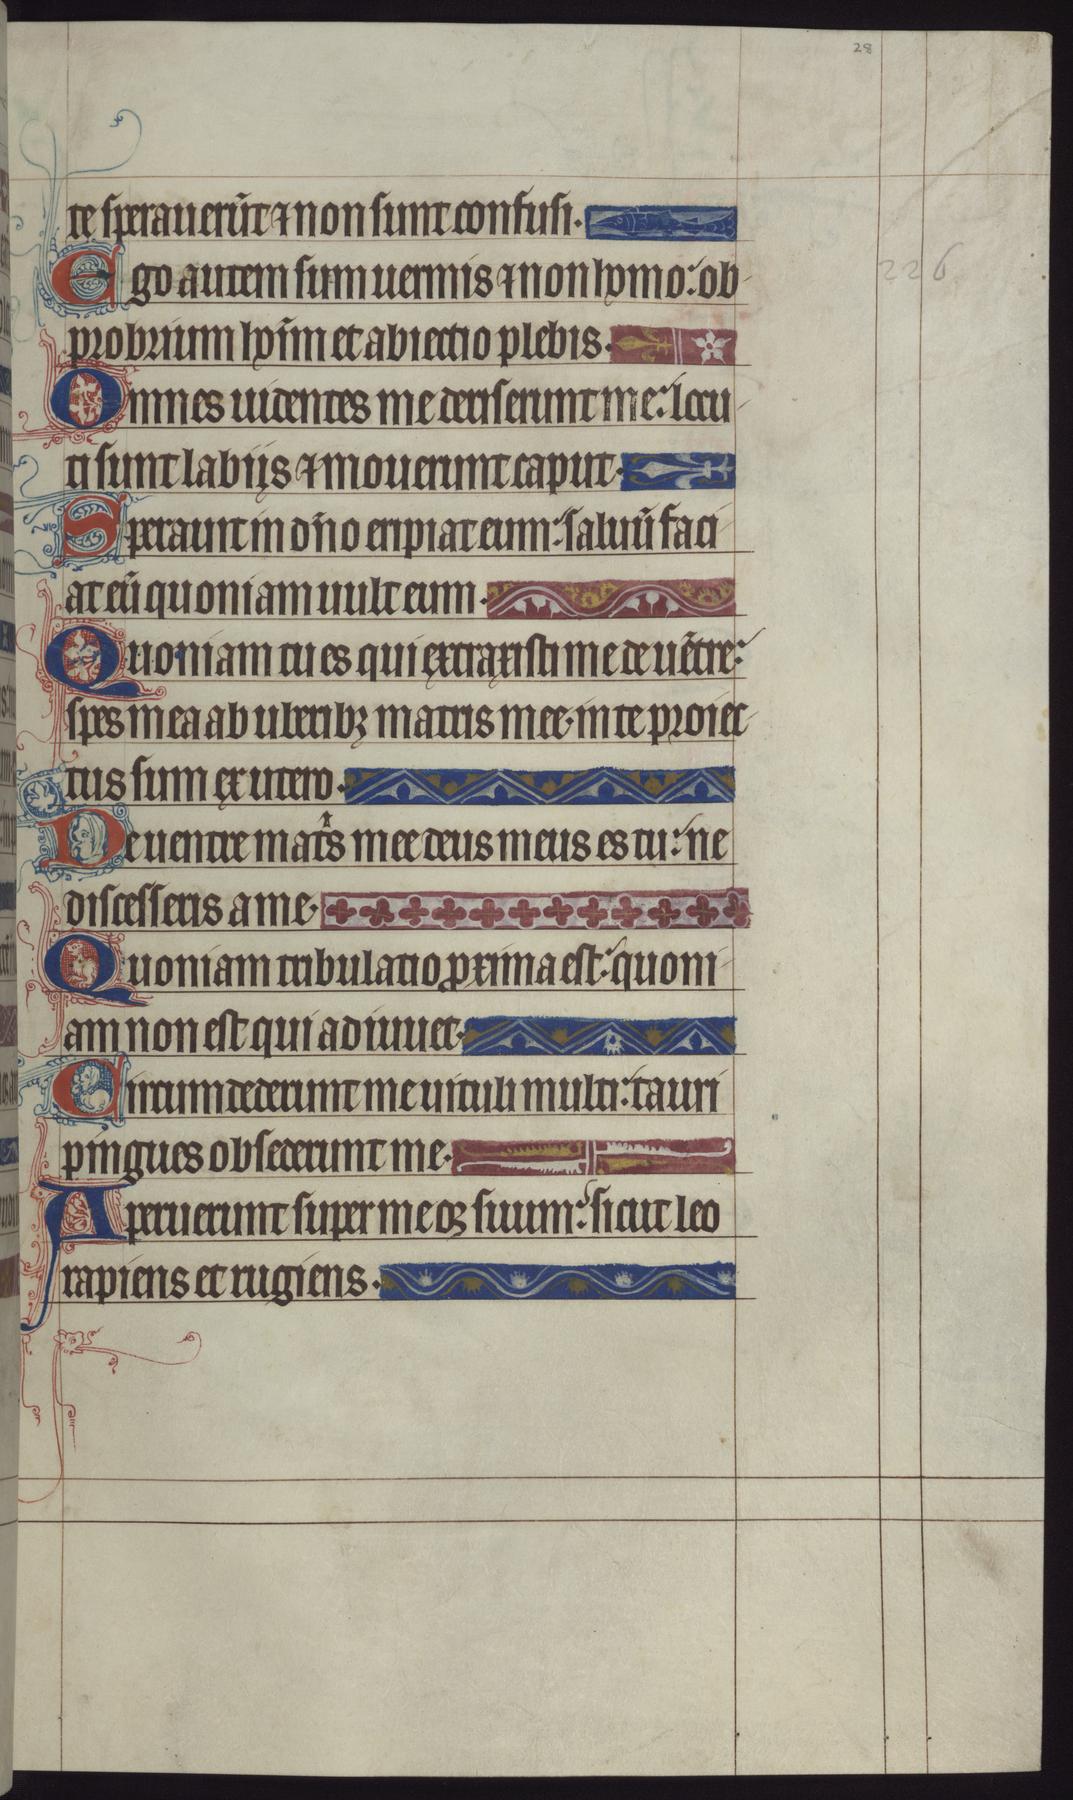 28
te sperauerūt ⁊ non sunt confusi.
Ego autem sum uermis ⁊ non homo: ob
probrium hōīm et abiectio plebis.
226
Omnes uidentes me deriserunt me: locu
ti sunt labijs ⁊ mouerunt caput.
Sperauit in dn̄o eripiat eum: saluū faci
at eū quoniam uult eum.
Quoniam tu es qui extraxisti me de uētre:
spes mea ab uberibꝫ matris mee. in te proiec
tus sum ex utero.
De uentre mat͛s mee deus meus es tu: ne
discesseris a me.
Quoniam tribulatio ꝓxima est: quoni
am non est qui adiuuet.
Circumdederunt me uituli multi: tauri
pingues obsederunt me.
Aperuerunt super me oꝫ suum: sicut leo
rapiens et rugiens.